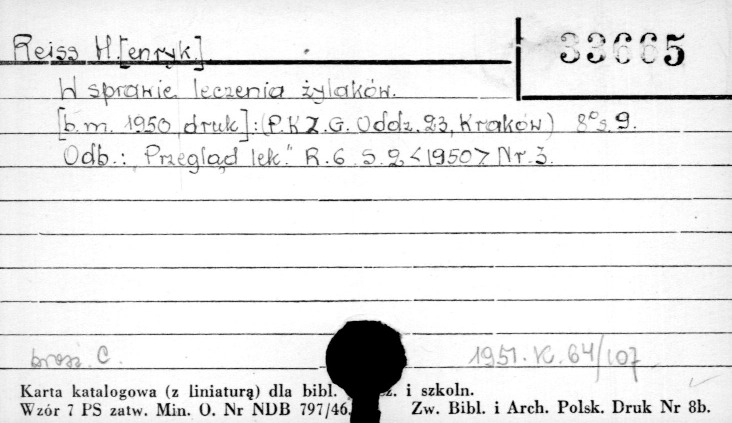 Reiss H[enryk]
33665
W sprawie leczenia żylaków.
[b.m. 1950, druk]: (P.K.Z.G. Oddz. 23, Kraków) 8° s. 9.
Odb.: "Przegląd lek." R. 6 S. 2 <1950> Nr. 3.
brosz. C.
1951. K. 64/107
Karta katalogowa (z liniaturą) dla bibl. i szkoln.
Wzór 7 PS zatw. Min. O. Nr NDB 797/46. Zw. Bibl. i Arch. Polsk. Druk Nr 8b.